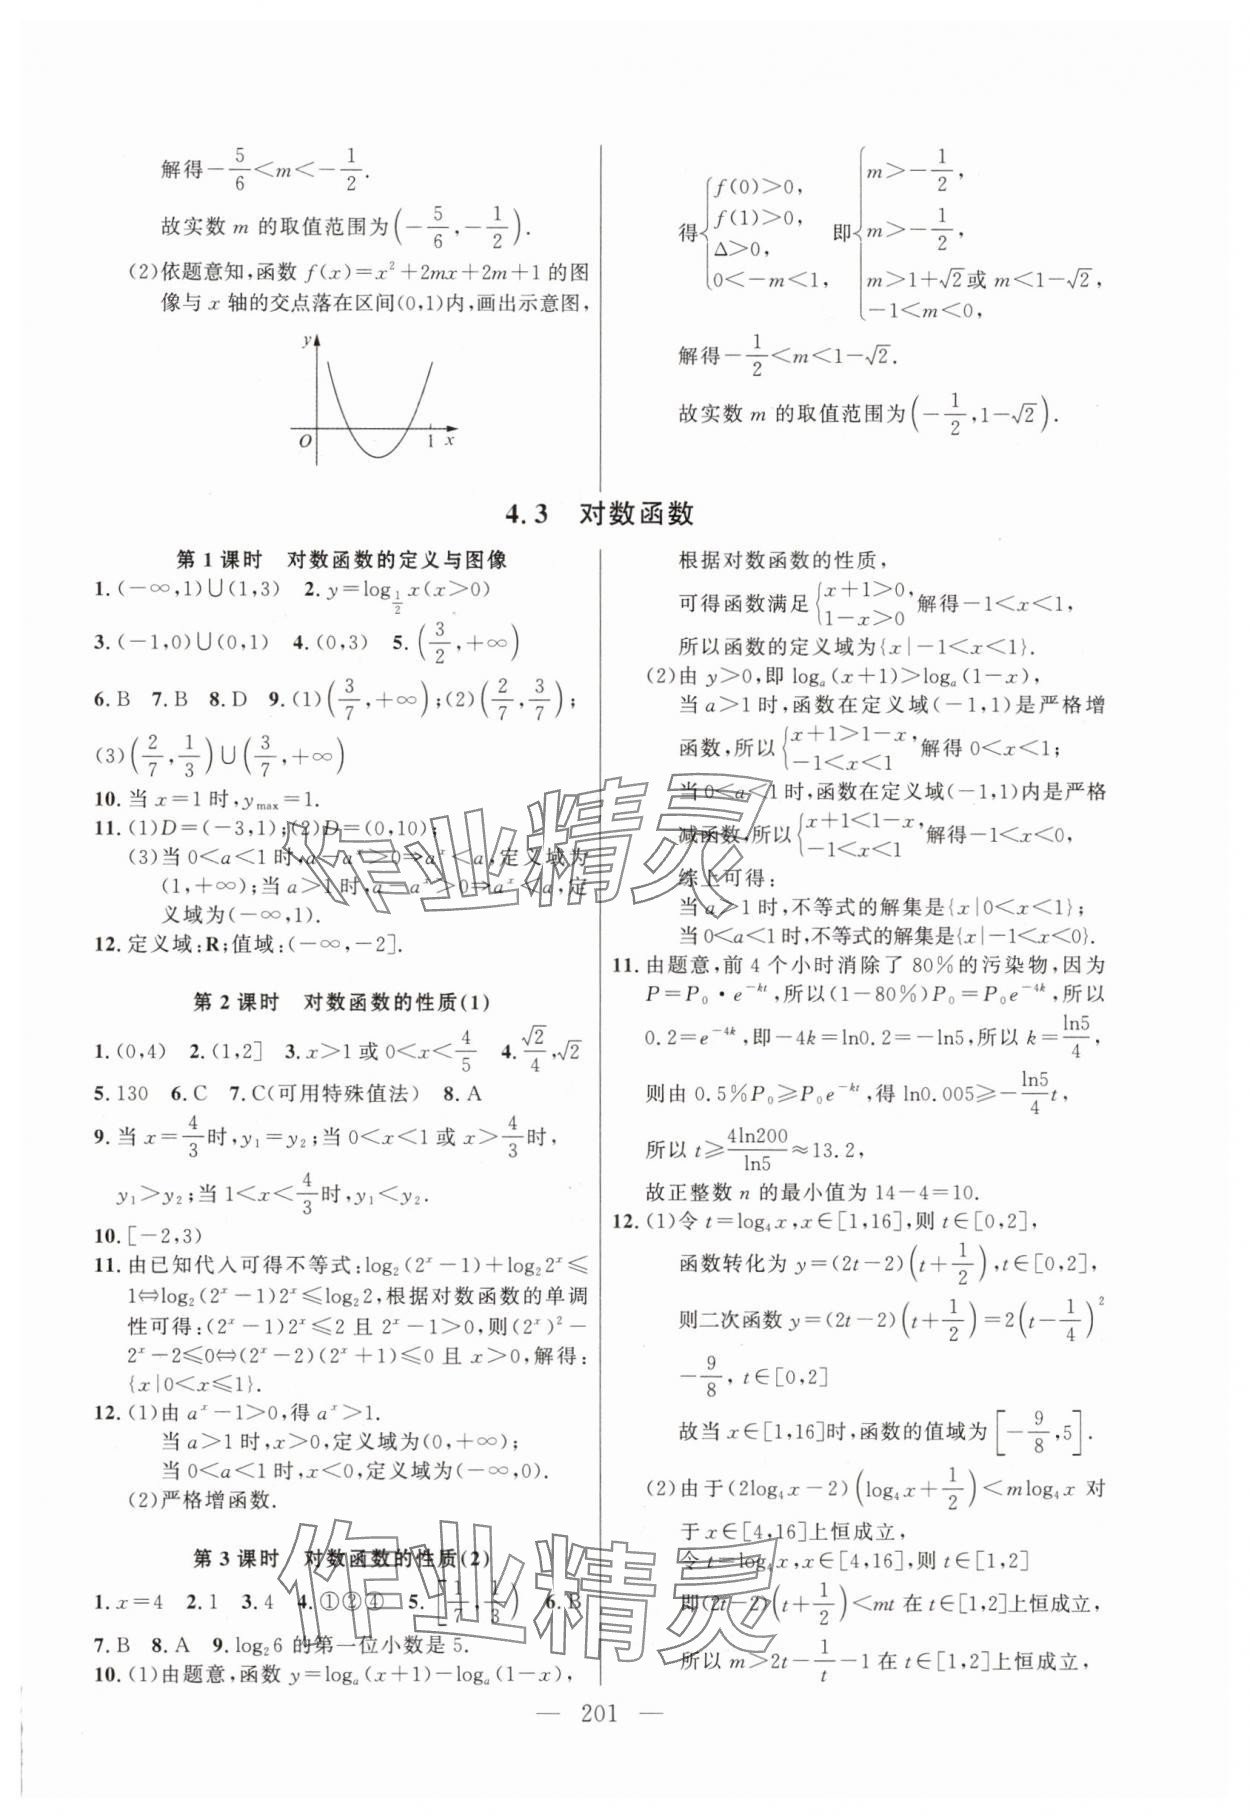 解得-5/6<m<-1/2.
故实数 m 的取值范围为(-5/6,-1/2).
(2)依题意知,函数 f(x)=x²+2mx+2m+1 的图
像与 x 轴的交点落在区间(0,1)内,画出示意图,
y
O 1 x
得{f(0)>0, f(1)>0, Δ>0, 0<-m<1, 即{m>-1/2, m>-1/2, m>1+√2或 m<1-√2, -1<m<0,
解得-1/2<m<1-√2.
故实数 m 的取值范围为(-1/2,1-√2).
4.3 对数函数
第1课时 对数函数的定义与图像
1.(-∞,1)∪(1,3) 2. y=log_{1/2} x(x>0)
3.(-1,0)∪(0,1) 4.(0,3) 5.(3/2,+∞)
6. B 7. B 8. D 9.(1)(3/7,+∞);(2)(2/7,3/7);
(3)(2/7,1/3)∪(3/7,+∞)
10.当 x=1 时,y_max=1.
11.(1)D=(-3,1);(2)D=(0,10);
(3)当 0<a<1 时,a-a^x>0⇒a^x<a,定义域为
(1,+∞);当 a>1 时,a-a^x>0⇒a^x<a,定
义域为(-∞,1).
12.定义域:R;值域:(-∞,-2].
第2课时 对数函数的性质(1)
1.(0,4) 2.(1,2] 3. x>1 或 0<x<4/5 4. √2/4,√2
5. 130 6. C 7. C(可用特殊值法) 8. A
9.当 x=4/3时,y₁=y₂;当 0<x<1 或 x>4/3时,
y₁>y₂;当 1<x<4/3时,y₁<y₂.
10.[-2,3)
11.由已知代入可得不等式:log₂(2^x-1)+log₂2^x≤
1⇔log₂(2^x-1)2^x≤log₂2,根据对数函数的单调
性可得:(2^x-1)2^x≤2 且 2^x-1>0,则(2^x)²-
2^x-2≤0⇔(2^x-2)(2^x+1)≤0 且 x>0,解得:
{x|0<x≤1}.
12.(1)由 a^x-1>0,得 a^x>1.
当 a>1 时,x>0,定义域为(0,+∞);
当 0<a<1 时,x<0,定义域为(-∞,0).
(2)严格增函数.
第3课时 对数函数的性质(2)
1. x=4 2. 1 3. 4 4. ①②④ 5. [1/7,1/3) 6. B
7. B 8. A 9. log₂6 的第一位小数是 5.
10.(1)由题意,函数 y=log_a(x+1)-log_a(1-x),
根据对数函数的性质,
可得函数满足{x+1>0, 1-x>0 解得-1<x<1,
所以函数的定义域为{x|-1<x<1}.
(2)由 y>0,即 log_a(x+1)>log_a(1-x),
当 a>1 时,函数在定义域(-1,1)是严格增
函数,所以{x+1>1-x, -1<x<1 解得 0<x<1;
当 0<a<1 时,函数在定义域(-1,1)内是严格
减函数,所以{x+1<1-x, -1<x<1 解得-1<x<0,
综上可得:
当 a>1 时,不等式的解集是{x|0<x<1};
当 0<a<1 时,不等式的解集是{x|-1<x<0}.
11.由题意,前 4 个小时消除了 80%的污染物,因为
P=P₀·e^{-kt},所以(1-80%)P₀=P₀e^{-4k},所以
0.2=e^{-4k},即-4k=ln0.2=-ln5,所以 k=ln5/4,
则由 0.5%P₀≥P₀e^{-kt},得 ln0.005≥-ln5/4 t,
所以 t≥4ln200/ln5≈13.2,
故正整数 n 的最小值为 14-4=10.
12.(1)令 t=log₄x,x∈[1,16],则 t∈[0,2],
函数转化为 y=(2t-2)(t+1/2),t∈[0,2],
则二次函数 y=(2t-2)(t+1/2)=2(t-1/4)²
-9/8, t∈[0,2]
故当 x∈[1,16]时,函数的值域为[-9/8,5].
(2)由于(2log₄x-2)(log₄x+1/2)<mlog₄x 对
于 x∈[4,16]上恒成立,
令 t=log₄x,x∈[4,16],则 t∈[1,2]
即(2t-2)(t+1/2)<mt 在 t∈[1,2]上恒成立,
所以 m>2t-1/t-1 在 t∈[1,2]上恒成立,
— 201 —
作业精灵
作业精灵